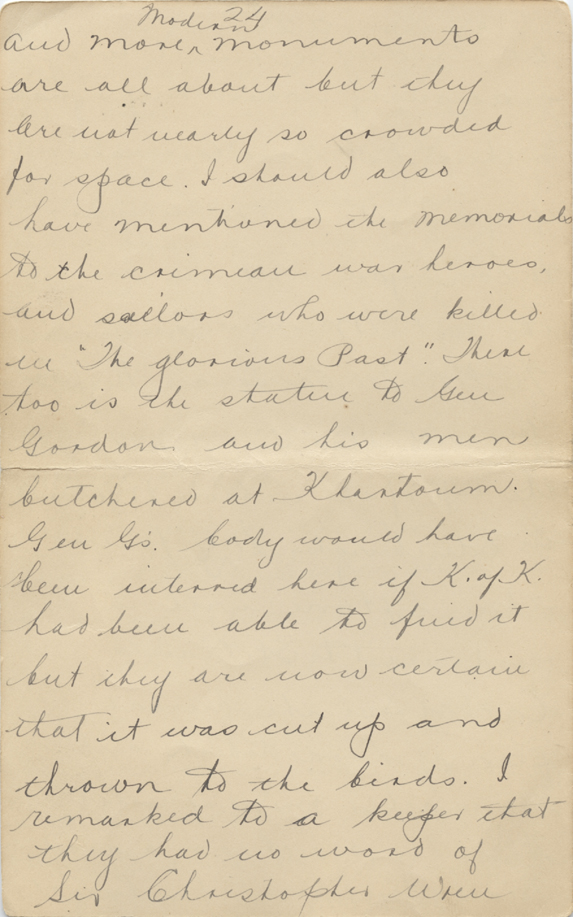 24
Modern
and more ‸ monuments
are all about but they
are not nearly so crowded
for space. I should also
have mentioned the memorials
to the crimean war heroes,
and sailors who were killed
in "The glorious Past". There
too is the statue to Gen
Gordon and his men
butchered at Khartoum.
Gen G's. body would have
been interred here if K. of K.
had been able to find it
but they are now certain
that it was cut up and
thrown to the birds. I
remarked to a keeper that
they had no word of
Sir Christopher Wren